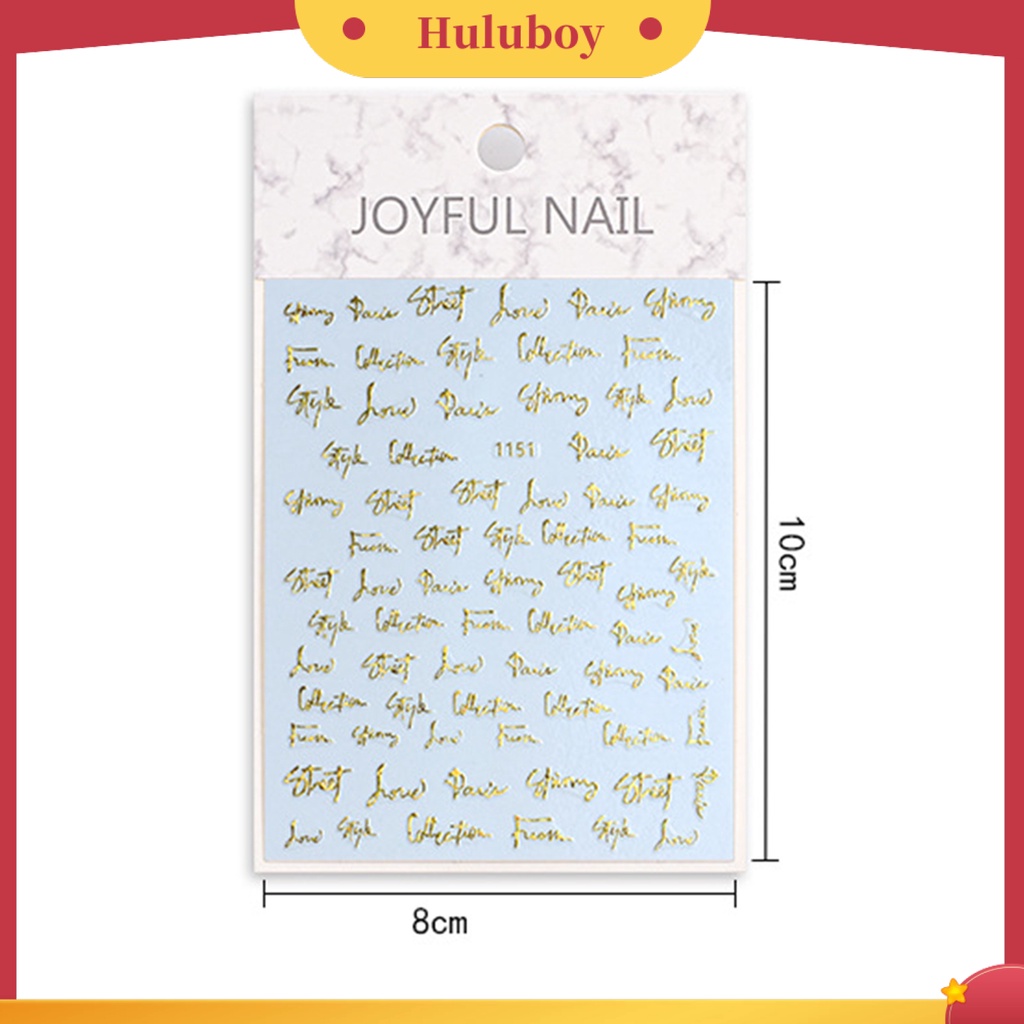 Huluboy
JOYFUL NAIL
Strong Paris Street Love Paris Strong
From Collection Style Collection From
Style Love Paris Strong Style Love
Style Collection 1151 Paris Street
Strong Street Street Love Paris Strong
From Street Style Collection From
Street Love Paris Strong Street Strong Style
Style Collection From Collection Paris Love
Love Street Love Paris Strong Paris
Collection Style Collection Collection
From Strong Love From Collection From
Street Love Paris Strong Street Paris
Love Style Collection From Style Love
10cm
8cm